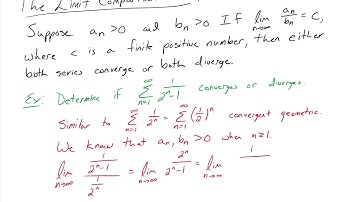 The Limit Comparison
Suppose aₙ>0 and bₙ>0 If lim n→∞ aₙ/bₙ = C,
where c is a finite positive number, then either
both series converge or both diverge.
Ex: Determine if ∑ n=1 ∞ 1/(2ⁿ-1) converges or diverges.
Similar to ∑ n=1 ∞ 1/2ⁿ = ∑ n=1 ∞ (1/2)ⁿ convergent geometric.
We know that aₙ, bₙ>0 when n≥1.
lim n→∞ (1/(2ⁿ-1))/(1/2ⁿ) = lim n→∞ 2ⁿ/(2ⁿ-1) = lim n→∞ 1/